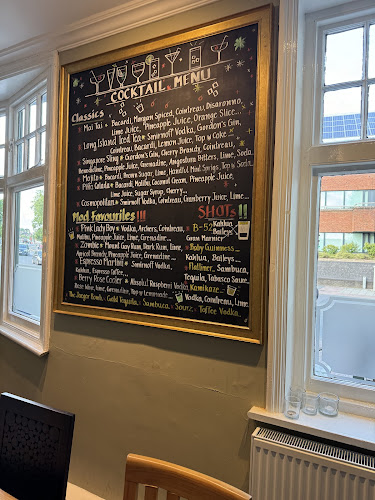 COCKTAIL MENU
Classics
Mai Tai * Bacardi, Morgan Spiced, Cointreau, Disaronno,
Lime Juice, Pineapple Juice, Orange Slice...
Long Island Iced Tea * Smirnoff Vodka, Gordon's Gin,
Cointreau, Bacardi, Lemon Juice, Top w Coke
Singapore Sling * Gordon's Gin, Cherry Brandy, Cointreau,
Benedictine, Pineapple Juice, Grenadine, Angostura Bitters, Lime, Soda
Mojito * Bacardi, Brown Sugar, Lime, Handful Mint Sprigs, Soda
Piña Colada * Bacardi, Malibu, Coconut Cream, Pineapple Juice,
Lime Juice, Sugar Syrup, Cherry...
Cosmopolitan * Smirnoff Vodka, Cointreau, Cranberry Juice, Lime...
Mod Favourites!!!
Pink Lady Boy * Vodka, Archers, Cointreau,
Malibu, Pineapple Juice, Lime, Grenadine...
Zombie * Mount Gay Rum, Dark Rum, Lime,
Apricot Brandy, Pineapple Juice, Grenadine...
Espresso Martini * Smirnoff Vodka,
Kahlua, Espresso Coffee...
Berry Rose Cooler * Absolut Raspberry Vodka,
Rose Wine, Lime, Grenadine, Top w Lemonade...
SHOTS!!
B-52 Kahlua, Baileys
Grand Marnier
Baby Guinness
Kahlua, Baileys...
Flatliner Sambuca,
Tequila, Tabasco Sauce
Kamikaze
Vodka, Cointreau, Lime
The Jaeger Bomb * Gold Tequila * Sambuca * Sourz * Toffee Vodka